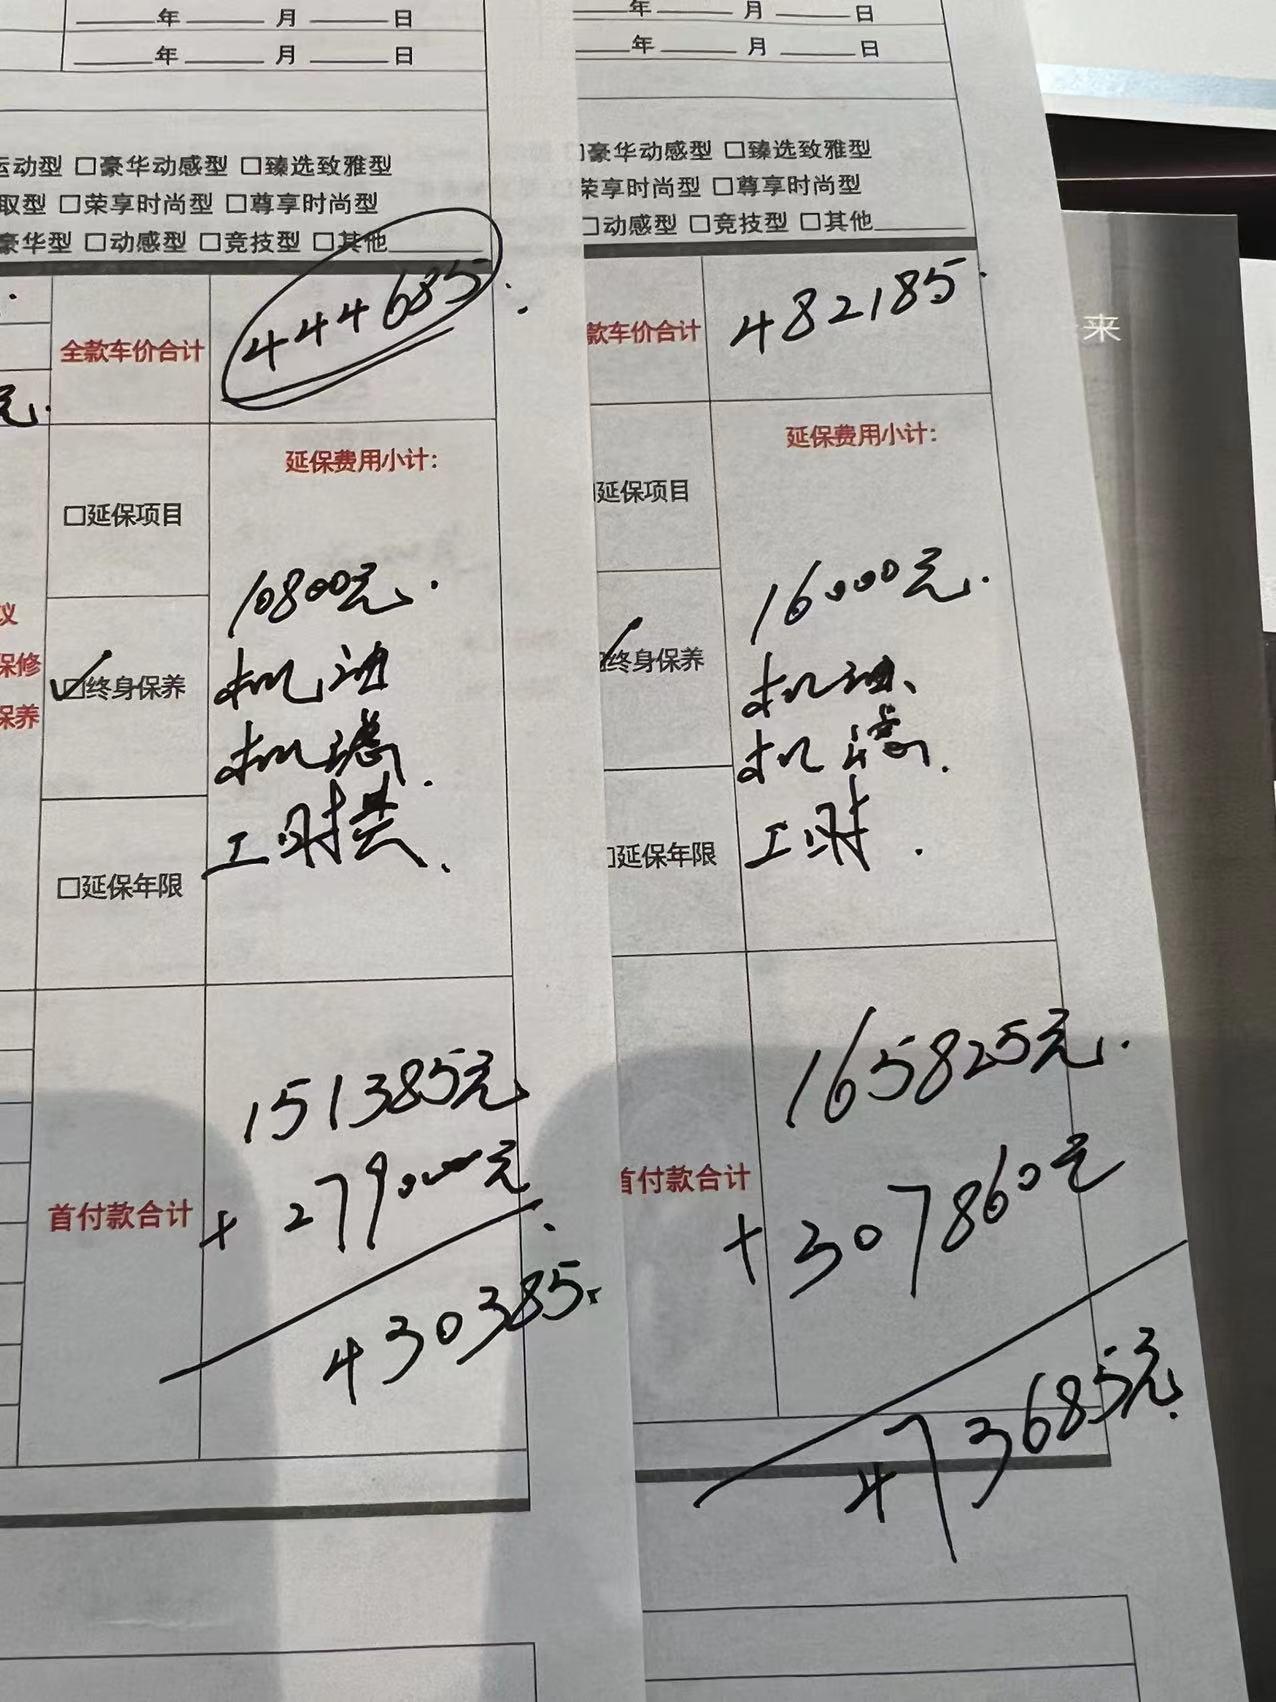 年 月 日
年 月 日
运动型 □豪华动感型 □臻选致雅型
取型 □荣享时尚型 □尊享时尚型
豪华型 □动感型 □竞技型 □其他
全款车价合计
444685
元.
延保费用小计:
□延保项目
10800元.
议
保修
保养
□终身保养
机油
机滤.
工时共.
□延保年限
首付款合计
151385元
+ 279000元
430385.
年 月 日
年 月 日
豪华动感型 □臻选致雅型
荣享时尚型 □尊享时尚型
□动感型 □竞技型 □其他
款车价合计
482185.
延保费用小计:
延保项目
16000元.
终身保养
机油、
机滤.
工时.
延保年限
首付款合计
165825元.
+ 307860元
473685元.
来